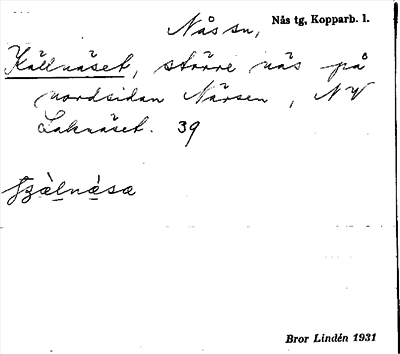 Nås sn, Nås tg, Kopparb. l.
Källnäset, större näs på
nordsidan Närsen, NV
Laknäset. 39
Bror Lindén 1931